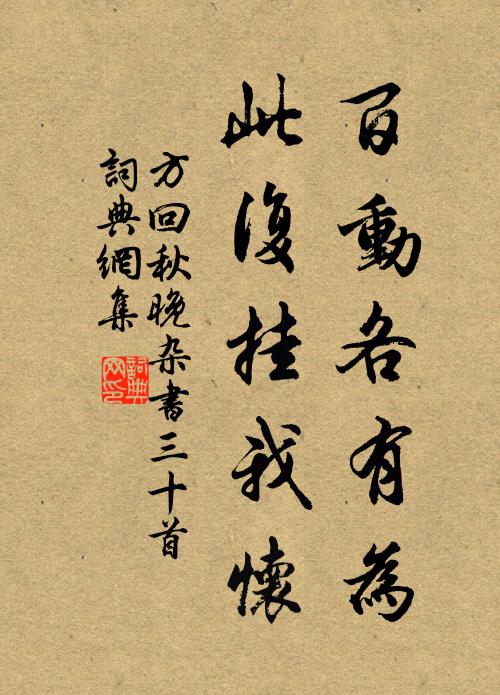 百動各有為
此復挂我懷
方回秋晚杂書三十首
詞典網集
詞典网印